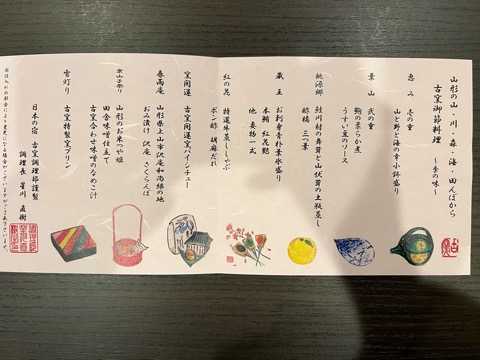 山形の山・川・森・海・田んぼから
古窯御節料理 ～冬の味～
恵み 壱の重
山と野と海の幸小鉢盛り
葉山 弐の重
鮑の柔らか煮
うすい豆のソース
桃源郷 鮭川村の舞茸と山伏茸の土瓶蒸し
酢橘 三つ葉
蔵王 お刺身青竹子氷盛り
本鮪 紅花鯛
他 妻物一式
紅の花 特選牛蒸ししゃぶ
ポン酢 胡麻だれ
窯開運 古窯開運窯パインチュー
春雨庵 山形県上山市沢庵和尚縁の地
おみ漬け 沢庵 さくらんぼ
山形のお米つや姫
田舎味噌仕立て
古窯合わせ味噌のなめこ汁
雪灯り 古窯特製窯プリン
日本の宿 古窯調理部謹製
調理長 星川 直樹